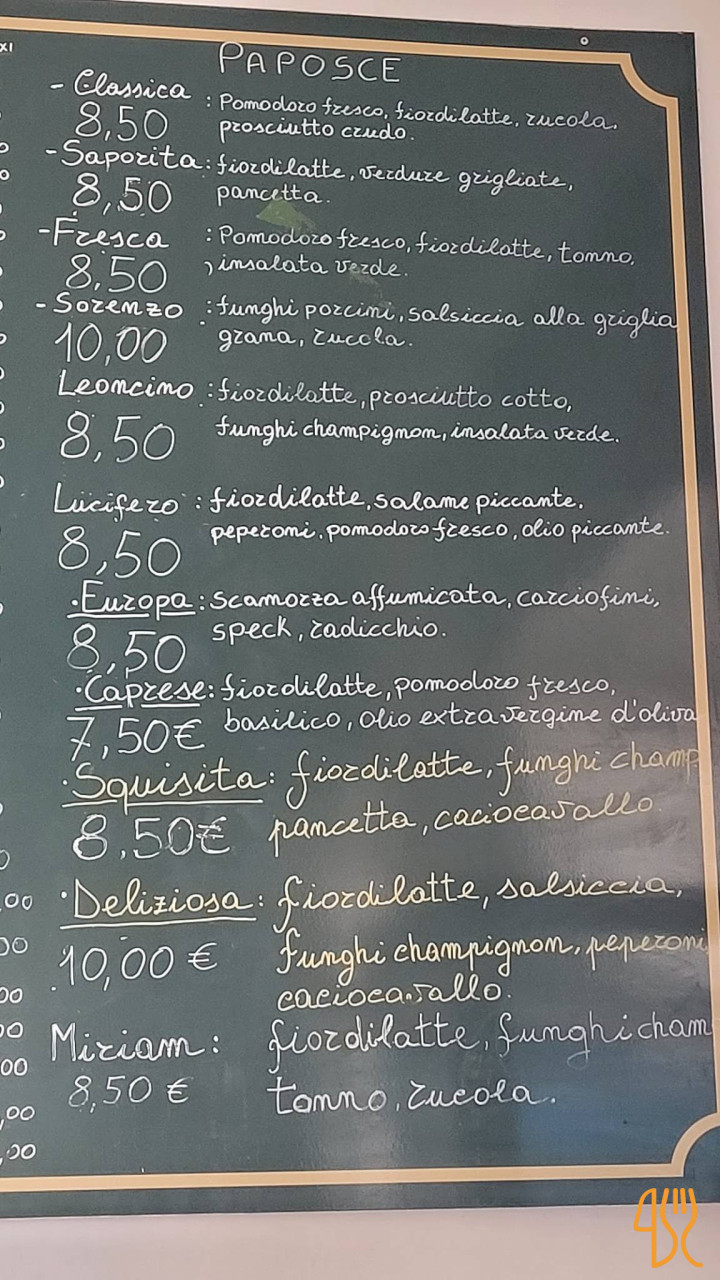 XI
PAPOSCE
- Classica : Pomodoro fresco, fiordilatte, rucola,
8,50 prosciutto crudo.
- Saporita : fiordilatte, verdure grigliate,
8,50 pancetta.
- Fresca : Pomodoro fresco, fiordilatte, tonno,
8,50 insalata verde.
- Sorenzo : funghi porcini, salsiccia alla griglia
10,00 grana, rucola.
Leoncino : fiordilatte, prosciutto cotto,
8,50 funghi champignon, insalata verde.
Lucifero : fiordilatte, salame piccante,
8,50 peperoni, pomodoro fresco, olio piccante.
·Europa : scamorza affumicata, carciofini,
8,50 speck, radicchio.
·Caprese : fiordilatte, pomodoro fresco,
7,50€ basilico, olio extravergine d'oliva
·Squisita : fiordilatte, funghi champ
8,50€ pancetta, caciocavallo.
·Deliziosa : fiordilatte, salsiccia,
10,00 € funghi champignon, peperoni
caciocavallo.
Miriam : fiordilatte, funghi cham
8,50 € tonno, rucola.